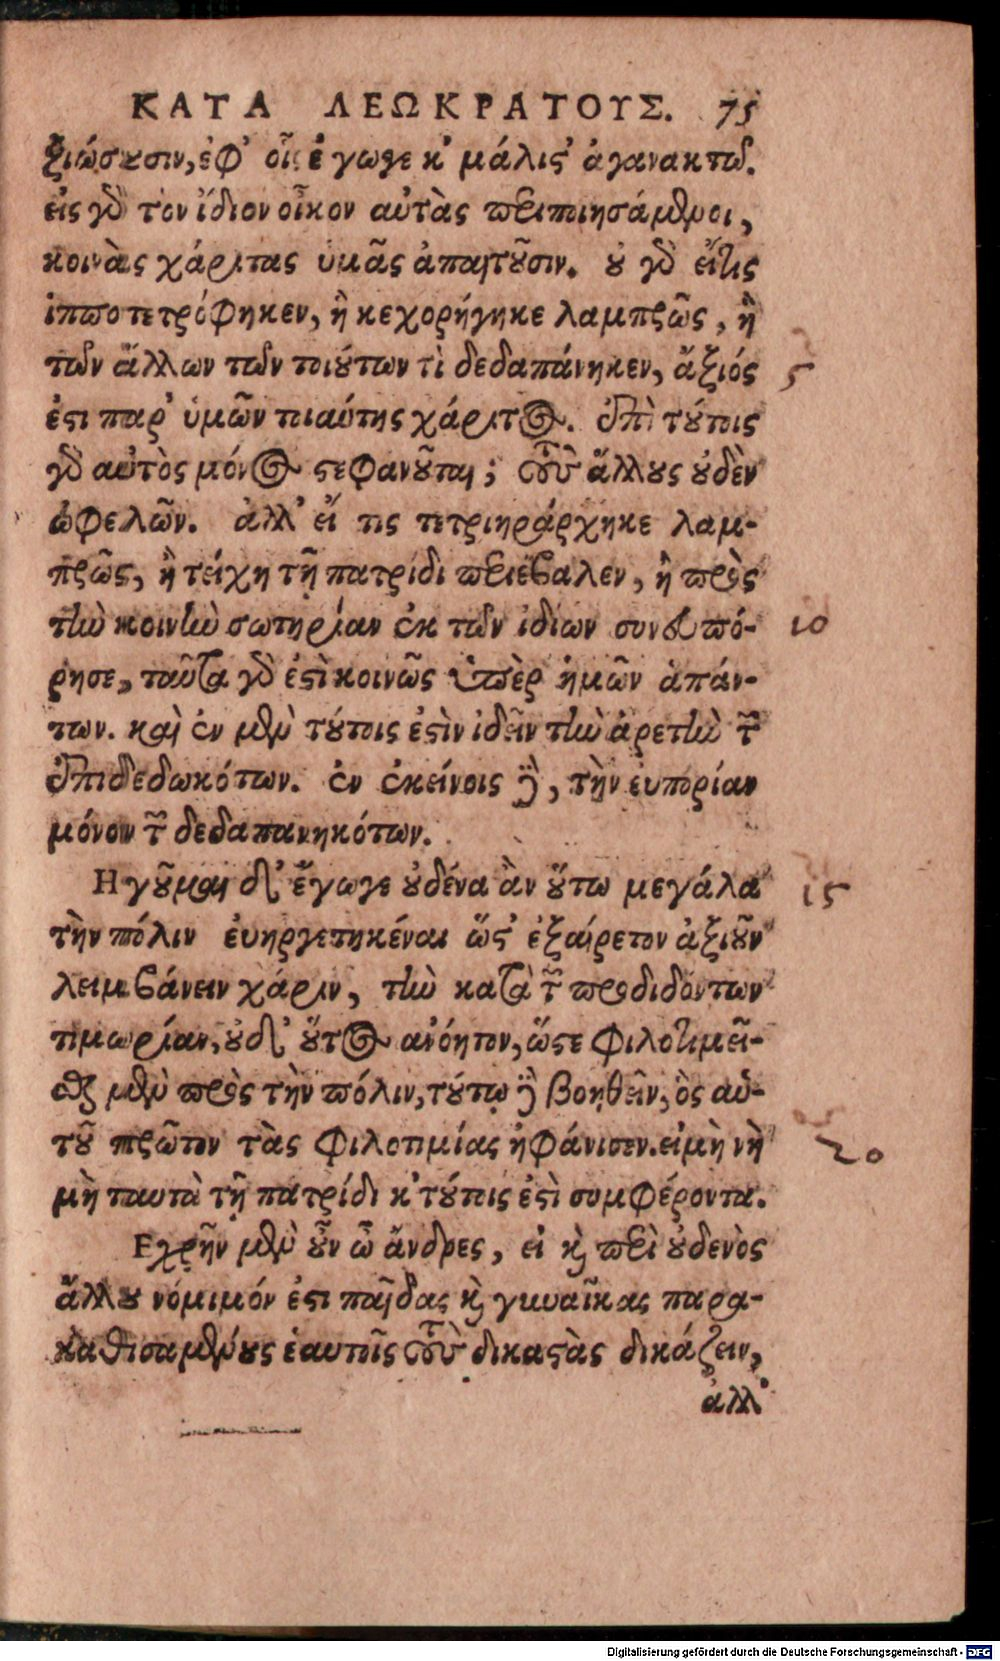 ΚΑΤΑ ΛΕΩΚΡΑΤΟΥΣ. 75
ξιώσουσιν, ἐφ' οἷς ἔγωγε καὶ μάλιστ' ἀγανακτῶ.
εἰς γὰρ τὸν ἴδιον οἶκον αὐτὰς περιποιησάμενοι,
κοινὰς χάριτας ὑμᾶς ἀπαιτοῦσιν. οὐ γὰρ εἴτις
ἱπποτετρόφηκεν, ἢ κεχορήγηκε λαμπρῶς, ἢ
τῶν ἄλλων τῶν τοιούτων τὶ δεδαπάνηκεν, ἄξιός 5
ἐστι παρ' ὑμῶν τοιαύτης χάριτος. ἐπὶ τούτοις
γὰρ αὐτὸς μόνος στεφανοῦται; τοὺς ἄλλους οὐδὲν
ὠφελῶν. ἀλλ' εἴ τις τετριηράρχηκε λαμ-
πρῶς, ἢ τείχη τῇ πατρίδι περιέβαλεν, ἢ πρὸς
τὴν κοινὴν σωτηρίαν ἐκ τῶν ἰδίων συνευπό- 10
ρησε, ταῦτα γὰρ ἐστὶ κοινῶς ὑπὲρ ἡμῶν ἁπάν-
των. καὶ ἐν μὲν τούτοις ἐστὶν ἰδεῖν τὴν ἀρετὴν τῶν
ἐπιδεδωκότων. ἐν ἐκείνοις δὲ, τὴν εὐπορίαν
μόνον τῶν δεδαπανηκότων.
Ηγοῦμαι δ' ἔγωγε οὐδένα ἂν οὕτω μεγάλα 15
τὴν πόλιν εὐηργετηκέναι ὥστ' ἐξαίρετον ἀξιοῦν
λαμβάνειν χάριν, τὴν κατὰ τῶν προδιδόντων
τιμωρίαν, οὐδ' οὕτως ἀνόητον, ὥστε φιλοτιμεῖ-
σθαι μὲν πρὸς τὴν πόλιν, τούτῳ δὲ βοηθεῖν, ὃς αὐ-
τοῦ πρῶτον τὰς φιλοτιμίας ἠφάνισεν. εἰμὴ νὴ 20
μὴ ταυτὰ τῇ πατρίδι καὶ τούτοις ἐστὶ συμφέροντα.
Εχρῆν μὲν οὖν ὦ ἄνδρες, εἰ καὶ περὶ οὐδενὸς
ἄλλου νόμιμόν ἐστι παῖδας καὶ γυναῖκας παρα-
καθισαμένους ἑαυτοῖς τοὺς δικαστὰς δικάζειν,
ἀλλ'
Digitalisierung gefördert durch die Deutsche Forschungsgemeinschaft - DFG